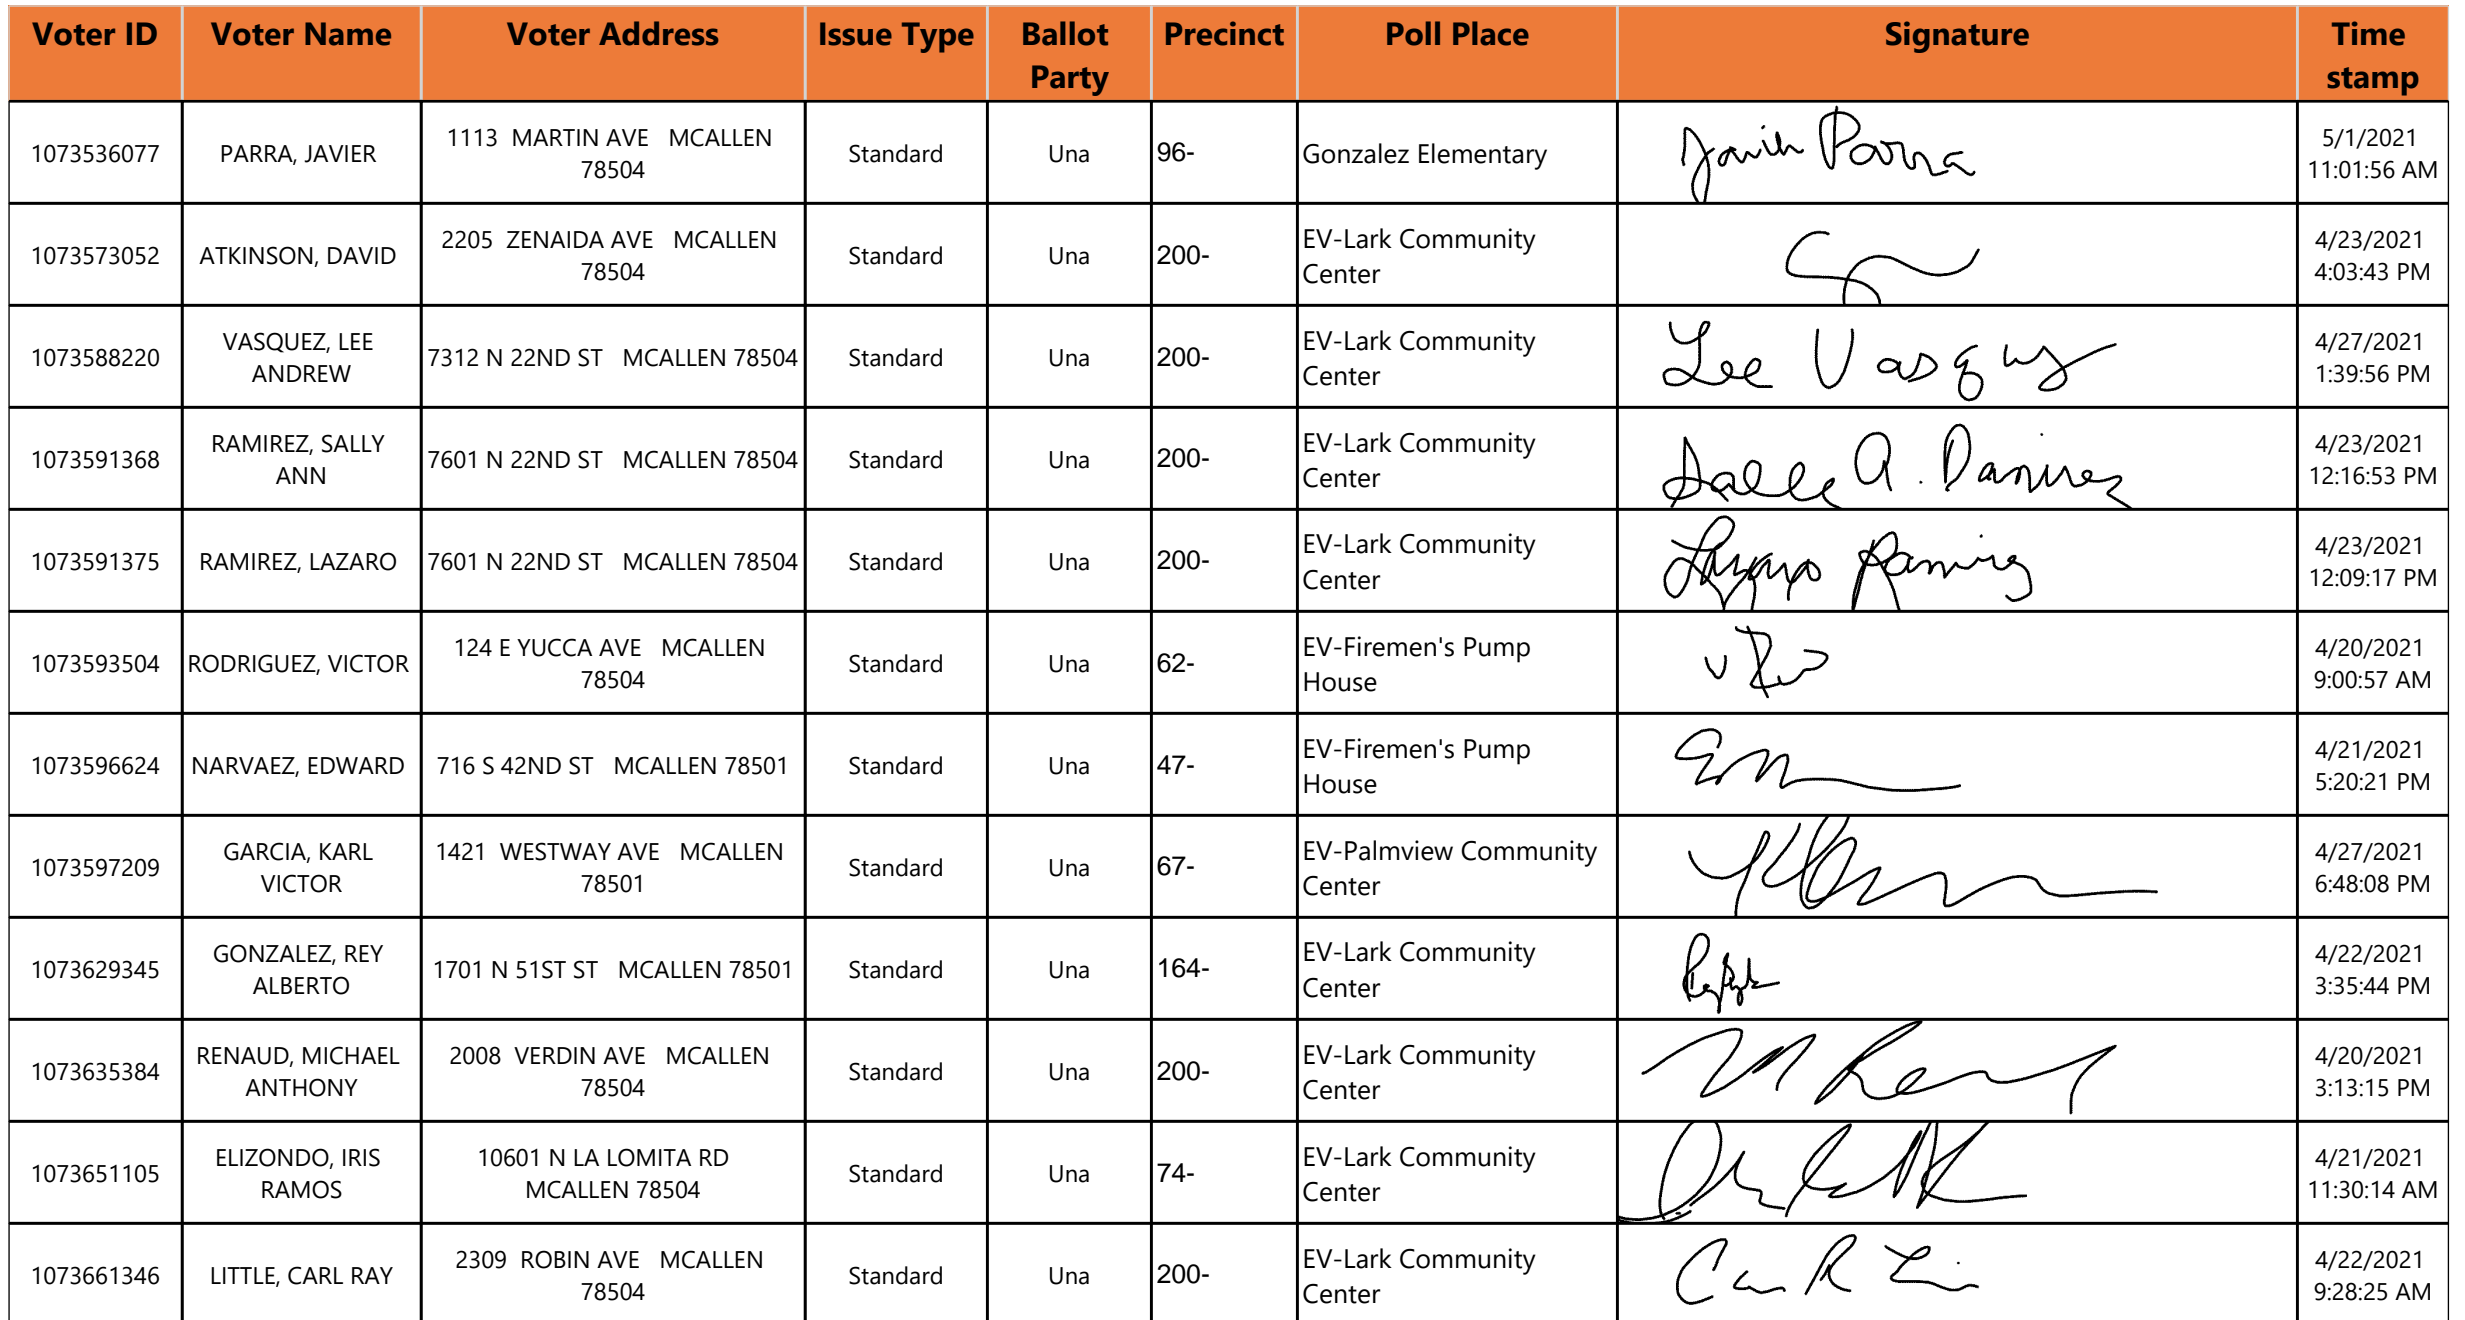 Voter ID Voter Name Voter Address Issue Type Ballot Party Precinct Poll Place Signature Time stamp
1073536077 PARRA, JAVIER 1113 MARTIN AVE MCALLEN 78504 Standard Una 96- Gonzalez Elementary Javier Parra 5/1/2021 11:01:56 AM
1073573052 ATKINSON, DAVID 2205 ZENAIDA AVE MCALLEN 78504 Standard Una 200- EV-Lark Community Center 4/23/2021 4:03:43 PM
1073588220 VASQUEZ, LEE ANDREW 7312 N 22ND ST MCALLEN 78504 Standard Una 200- EV-Lark Community Center Lee Vasquez 4/27/2021 1:39:56 PM
1073591368 RAMIREZ, SALLY ANN 7601 N 22ND ST MCALLEN 78504 Standard Una 200- EV-Lark Community Center Sally A. Ramirez 4/23/2021 12:16:53 PM
1073591375 RAMIREZ, LAZARO 7601 N 22ND ST MCALLEN 78504 Standard Una 200- EV-Lark Community Center Lazaro Ramirez 4/23/2021 12:09:17 PM
1073593504 RODRIGUEZ, VICTOR 124 E YUCCA AVE MCALLEN 78504 Standard Una 62- EV-Firemen's Pump House 4/20/2021 9:00:57 AM
1073596624 NARVAEZ, EDWARD 716 S 42ND ST MCALLEN 78501 Standard Una 47- EV-Firemen's Pump House 4/21/2021 5:20:21 PM
1073597209 GARCIA, KARL VICTOR 1421 WESTWAY AVE MCALLEN 78501 Standard Una 67- EV-Palmview Community Center 4/27/2021 6:48:08 PM
1073629345 GONZALEZ, REY ALBERTO 1701 N 51ST ST MCALLEN 78501 Standard Una 164- EV-Lark Community Center 4/22/2021 3:35:44 PM
1073635384 RENAUD, MICHAEL ANTHONY 2008 VERDIN AVE MCALLEN 78504 Standard Una 200- EV-Lark Community Center 4/20/2021 3:13:15 PM
1073651105 ELIZONDO, IRIS RAMOS 10601 N LA LOMITA RD MCALLEN 78504 Standard Una 74- EV-Lark Community Center 4/21/2021 11:30:14 AM
1073661346 LITTLE, CARL RAY 2309 ROBIN AVE MCALLEN 78504 Standard Una 200- EV-Lark Community Center 4/22/2021 9:28:25 AM